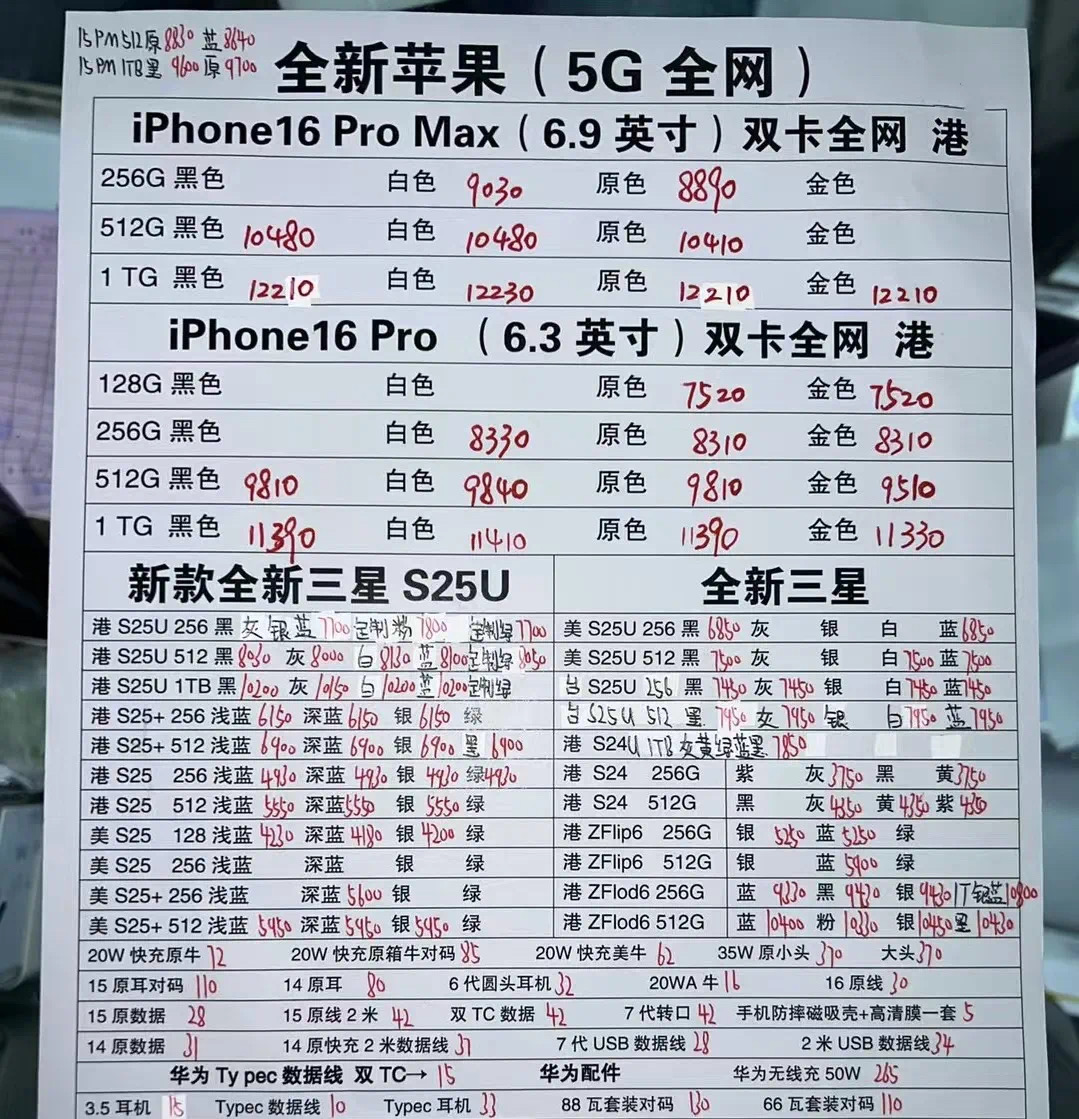 15PM 512原8830 蓝8640
15PM 1TB黑 9600 原9700
全新苹果（5G 全网）
iPhone16 Pro Max（6.9 英寸）双卡全网 港
256G 黑色 白色 9030 原色 8890 金色
512G 黑色 10480 白色 10480 原色 10410 金色
1 TG 黑色 12210 白色 12230 原色 12210 金色 12210
iPhone16 Pro （6.3 英寸）双卡全网 港
128G 黑色 白色 原色 7520 金色 7520
256G 黑色 白色 8330 原色 8310 金色 8310
512G 黑色 9810 白色 9840 原色 9810 金色 9510
1 TG 黑色 11390 白色 11410 原色 11390 金色 11330
新款全新三星 S25U
港 S25U 256 黑 灰 银 蓝 7700 定制粉 7800 定制绿 7700
港 S25U 512 黑 8030 灰 8000 白 8130 蓝 8100 定制绿 8050
港 S25U 1TB 黑 10200 灰 10150 白 10200 蓝 10200 定制绿
港 S25+ 256 浅蓝 6150 深蓝 6150 银 6150 绿
港 S25+ 512 浅蓝 6900 深蓝 6900 银 6900 黑 6900
港 S25 256 浅蓝 4930 深蓝 4930 银 4930 绿 4930
港 S25 512 浅蓝 5550 深蓝 5550 银 5550 绿
美 S25 128 浅蓝 4230 深蓝 4180 银 4200 绿
美 S25 256 浅蓝 深蓝 银 绿
美 S25+ 256 浅蓝 深蓝 5600 银 绿
美 S25+ 512 浅蓝 5950 深蓝 5950 银 5950 绿
全新三星
美 S25U 256 黑 6850 灰 银 白 蓝 6850
美 S25U 512 黑 7500 灰 银 白 7500 蓝 7500
台 S25U 256 黑 7450 灰 7450 银 白 7450 蓝 7450
台 S25U 512 黑 7950 灰 7950 银 白 7950 蓝 7950
港 S24U 1TB 灰黄绿蓝黑 7850
港 S24 256G 紫 灰 3750 黑 黄 3750
港 S24 512G 黑 灰 4350 黄 4350 紫 4350
港 ZFlip6 256G 银 5250 蓝 5250 绿
港 ZFlip6 512G 银 蓝 5900 绿
港 ZFlod6 256G 蓝 9330 黑 9430 银 9430 1T银蓝 10800
港 ZFlod6 512G 蓝 10400 粉 10330 银 10450 黑 10430
20W 快充原牛 72 20W 快充原箱牛对码 85 20W 快充美牛 62 35W 原小头 370 大头 370
15 原耳对码 110 14 原耳 80 6 代圆头耳机 32 20WA 牛 16 16 原线 30
15 原数据 28 15 原线 2 米 42 双 TC 数据 42 7 代转口 42 手机防摔磁吸壳+高清膜一套 5
14 原数据 31 14 原快充 2 米数据线 37 7 代 USB 数据线 28 2 米 USB 数据线 34
华为 Ty pec 数据线 双 TC→ 15 华为配件 华为无线充 50W 265
3.5 耳机 15 Typec 数据线 10 Typec 耳机 33 88 瓦套装对码 130 66 瓦套装对码 110